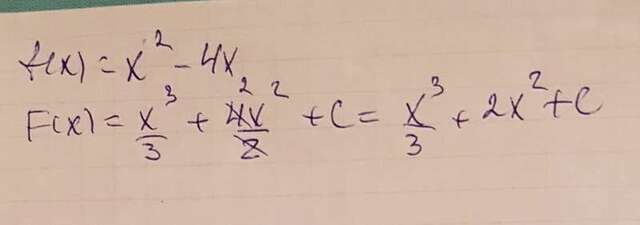 f(x) = x² - 4x
F(x) = x³/3 + 4x²/2 + C = x³/3 + 2x² + C